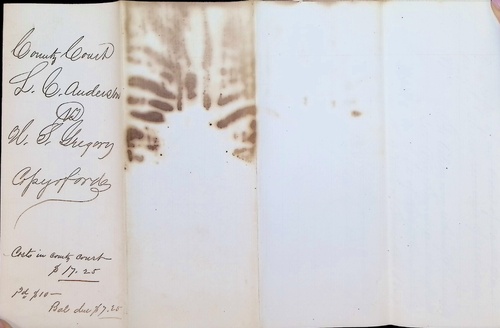 County Court
L. C. Anderson
vs
H. S. Gregory
Copy of order
Costs in county court
$17.25
Pd $10—
Bal due $7.25